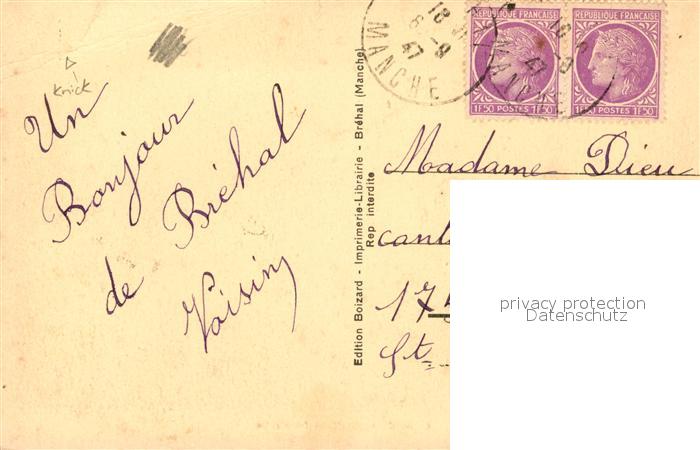 Knick
Un
Bonjour
de Bréhal
Voisin
Edition Boizard - Imprimerie-Librairie - Bréhal (Manche)
Rep interdite
MANCHE
18
6-9
47
REPUBLIQUE FRANÇAISE
1F50 POSTES 1F50
REPUBLIQUE FRANÇAISE
POSTES 1F50
Madame Dieu
cant
17
St
privacy protection
Datenschutz